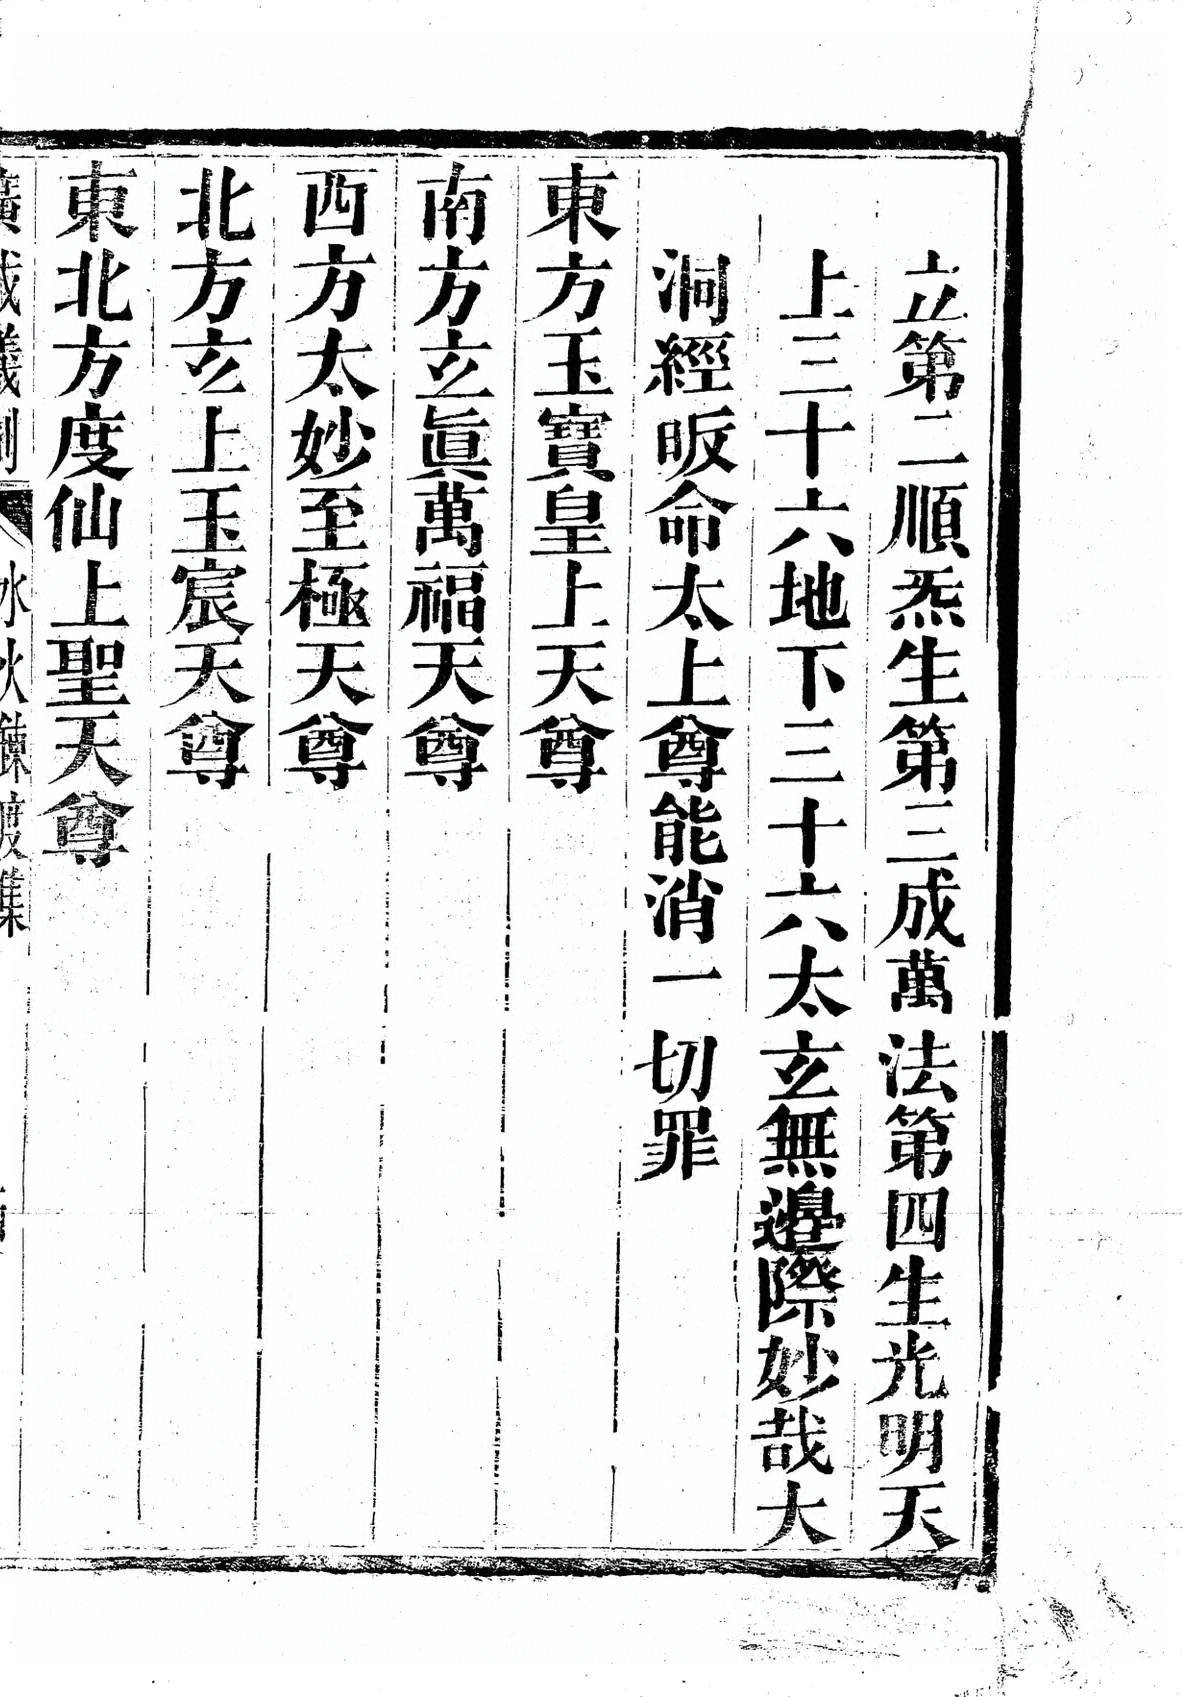 立第二順炁生第三成萬法第四生光明天
上三十六地下三十六太玄無邊際妙哉大
洞經皈命太上尊能消一切罪
東方玉寶皇上天尊
南方玄眞萬福天尊
西方太妙至極天尊
北方玄上玉宸天尊
東北方度仙上聖天尊
廣成儀制 水火鍊度集